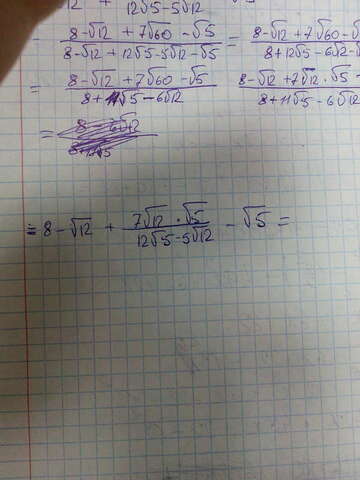 12√5-5√12
= (8-√12 + 7√60 - √5)/(8-√12 + 12√5-5√12-√5) = (8-√12 + 7√60 -)/(8+12√5-6√2-)
= (8-√12 + 7√60 - √5)/(8+11√5-6√12) (8-√12 + 7√12 · √5)/(8+11√5-6√12)
=
= 8-√12 + (7√12 · √5)/(12√5-5√12) - √5 =